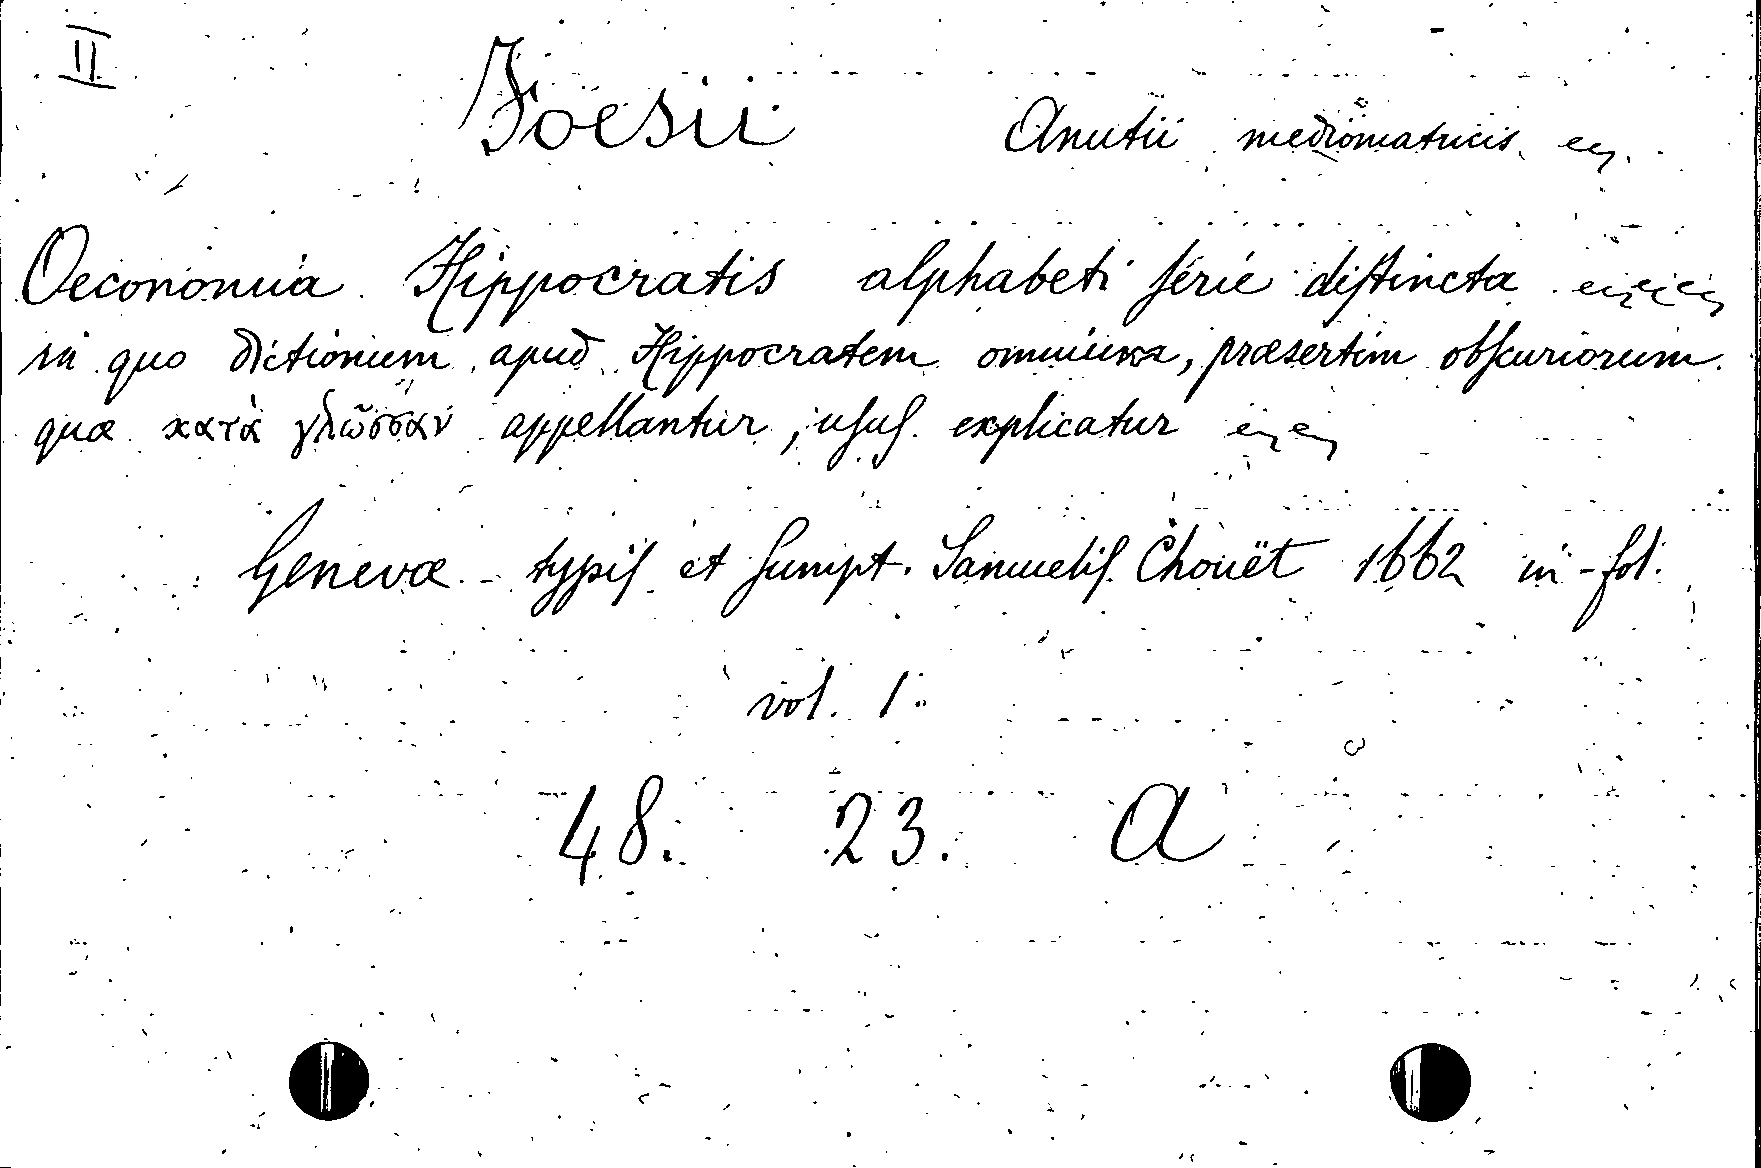 II
Foesii Anutii mediomatricis
Oeconomia Hippocratis alphabeti ſerie diſtincta
in quo dictionum apud Hippocratem omnium, præsertim obſcuriorum
quæ κατὰ γλῶσσαν appellantur, uſuſ explicatur
Genevæ - typiſ et ſumpt. Samueliſ Chouët 1662 in-fol.
vol. 1.
48. 23. A